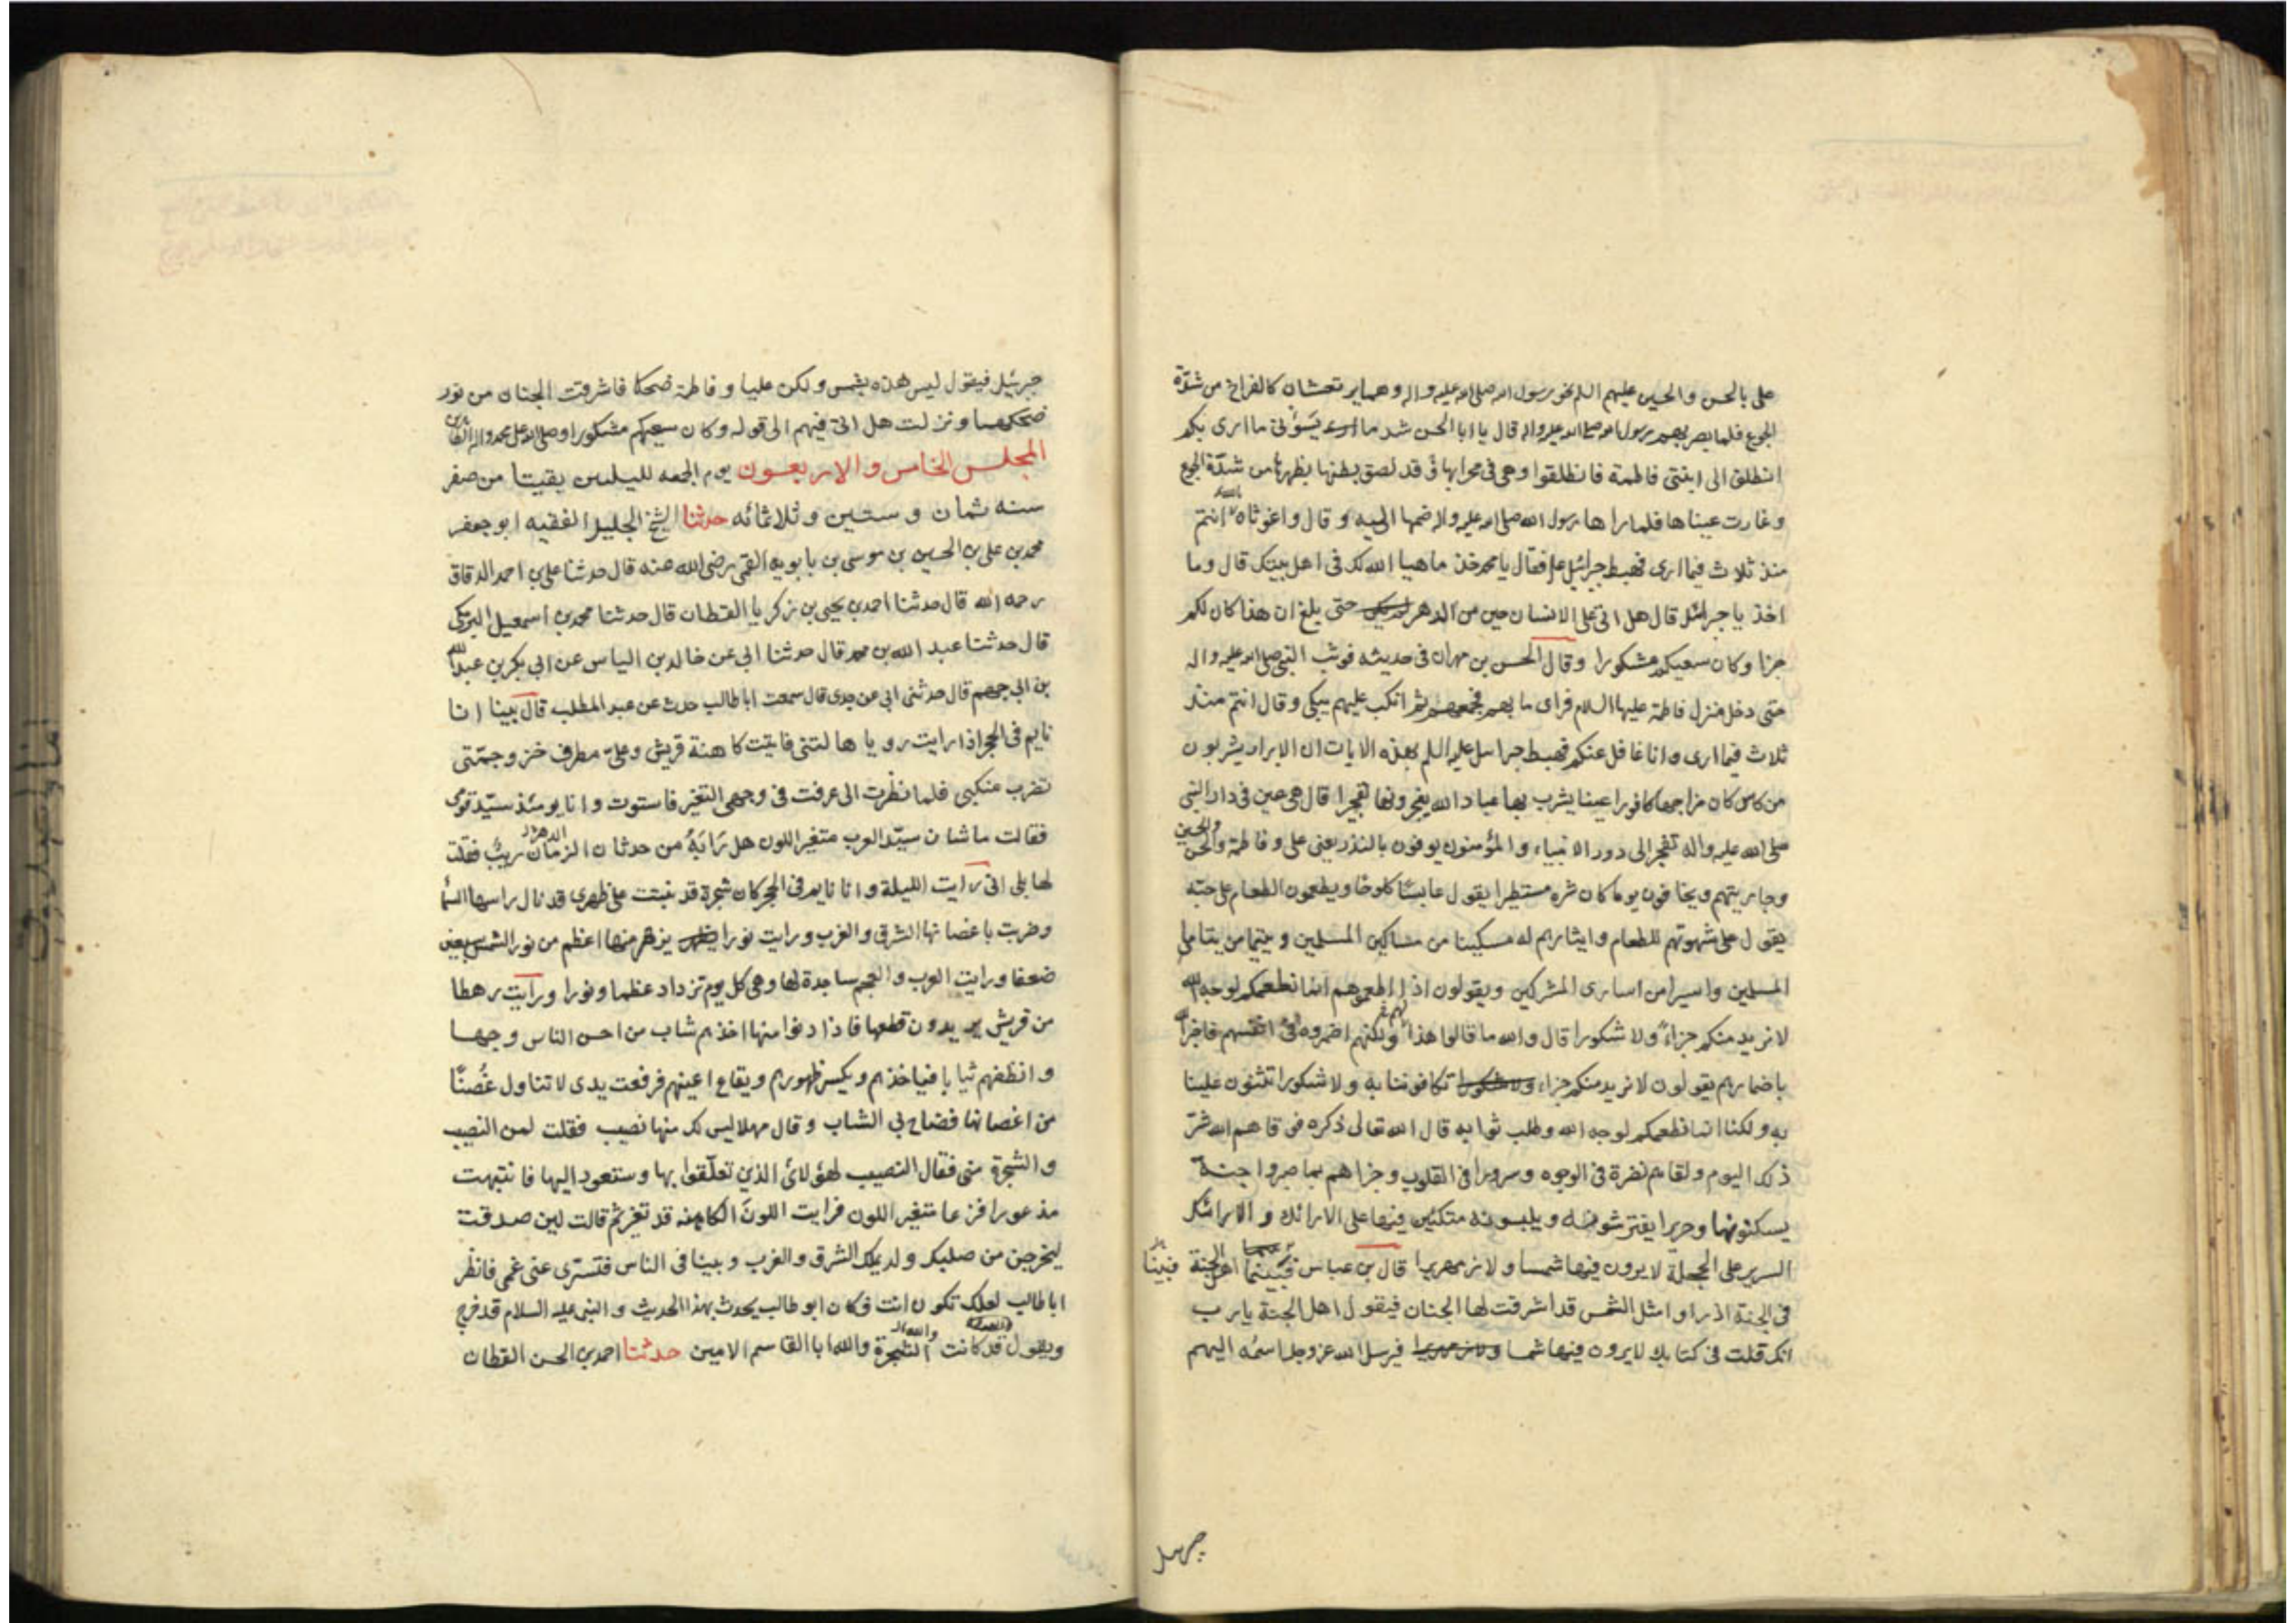 على بالحسن والحسين عليهم السلم نحو رسول الله صلى الله عليه واله وهما يرتعشان كالفراخ من شدّة
الجوع فلما بصر بهم رسول الله صلى الله عليه واله قال يا ابا الحسن شد ما يسوئنى ما ارى بكم
انطلق الى ابنتى فاطمة فانطلقوا وهى فى محرابها قد لصق بطنها بظهرها من شدّة الجوع
وغارت عيناها فلما راها رسول الله صلى الله عليه واله ضمها اليه وقال واغوثاه بالله انتم
منذ ثلاث فيما ارى فهبط جبرائيل فقال يا محمد خذ ما هيا الله لك فى اهل بيتك قال وما
اخذ يا جبرائيل قال هل اتى على الانسان حين من الدهر حتى بلغ ان هذا كان لكم
جزا وكان سعيكم مشكورا وقال الحسن بن مهران فى حديثه فوثب النبى صلى الله عليه واله
حتى دخل منزل فاطمة عليها السلام فراى ما بهم فجمعهم ثم انكب عليهم يبكى وقال انتم منذ
ثلاث فيما ارى وانا غافل عنكم فهبط جبرائيل عليه السلم بهذه الايات ان الابرار يشربون
من كاس كان مزاجها كافورا عينا يشرب بها عباد الله يفجرونها تفجيرا قال هى عين فى دار النبى
صلى الله عليه واله تفجر الى دور الانبياء والمؤمنون يوفون بالنذر يعنى على وفاطمة والحسن والحسين
وجاريتهم ويخافون يوما كان شره مستطيرا يقول عابسًا كلوحا ويطعمون الطعام على حبّه
يقول على شهوتهم للطعام وايثارهم له مسكينا من مساكين المسلمين ويتيما من يتامى
المسلمين واسيرا من اسارى المشركين ويقولون اذا اطعموهم انما نطعمكم لوجه الله
لا نريد منكم جزاءً ولا شكورا قال والله ما قالوا هذا لهم ولكنهم اضمروه فى انفسهم فاخبر الله
باضمارهم يقولون لا نريد منكم جزاء تكافوننا به ولا شكورا تثنون علينا
به ولكنا انما نطعمكم لوجه الله وطلب ثوابه قال الله تعالى ذكره فوقاهم الله شرّ
ذلك اليوم ولقاهم نضرة فى الوجوه وسرورا فى القلوب وجزاهم بما صبروا جنة
يسكنونها وحريرا يفترشونه ويلبسونه متكئين فيها على الارائك والارائك
السرير على الحجلة لا يرون فيها شمسا ولا زمهريرا قال بن عباس فبينما اهل الجنة فبينا
فى الجنة اذ راوا مثل الشمس قد اشرقت لها الجنان فيقول اهل الجنة يا رب
انك قلت فى كتابك لا يرون فيها شمسا ولا زمهريرا فيرسل الله عز وجل اسمُه اليهم
چهل
جبرئيل فيقول ليس هذه بشمس ولكن عليا وفاطمة ضحكا فاشرقت الجنان من نور
ضحكهما ونزلت هل اتى فيهم الى قوله وكان سعيكم مشكورا وصلى الله على محمد واله الطاهرين
المجلس الخامس والاربعون يوم الجمعه لليلتين بقيتا من صفر
سنه ثمان وستين وثلاثمائه حدثنا الشيخ الجليل الفقيه ابو جعفر
محمد بن على بن الحسين بن موسى بن بابويه القمى رضى الله عنه قال حدثنا على بن احمد الدقاق
رحمه الله قال حدثنا احمد بن يحيى بن زكريا القطان قال حدثنا محمد بن اسمعيل البرمكى
قال حدثنا عبد الله بن محمد قال حدثنا ابى عن خالد بن الياس عن ابى بكر بن عبد الله
بن ابى جهم قال حدثنى ابى عن جدى قال سمعت ابا طالب حدث عن عبد المطلب قال بينا انا
نايم فى الحجر اذ رايت رويا هالتنى فاتيت كاهنة قريش وعلىّ مطرف خز وجمّتى
تضرب منكبى فلما نظرت الى عرفت فى وجهى التغير فاستوت وانا يومئذ سيّد قومى
فقالت ما شان سيّد العرب متغير اللون هل رابَهُ من حدثان الزمان الدهر ريبٌ فقلت
لها بلى انى رايت الليلة وانا نايم فى الحجر كان شجرة قد نبتت على ظهرى قد نال راسها السماء
وضربت باغصانها الشرق والغرب ورايت نورا يزهر منها اعظم من نور الشمس سبعين
ضعفا ورايت العرب والعجم ساجدة لها وهى كل يوم تزداد عظما ونورا ورايت رهطا
من قريش يريدون قطعها فاذا دنوا منها اخذهم شاب من احسن الناس وجها
وانظفهم ثيابا فياخذهم ويكسر ظهورهم ويقلع اعينهم فرفعت يدى لاتناول غُصنًا
من اغصانها فصاح بى الشاب وقال مهلا ليس لك منها نصيب فقلت لمن النصيب
والشجرة منى فقال النصيب لهؤلائ الذين تعلّقوا بها وستعود اليها فانتبهت
مذعورا فزعا متغير اللون فرايت اللونَ الكاهنه قد تغير ثم قالت لين صدقت
ليخرجن من صلبك ولد يملك الشرق والغرب وبينا فى الناس فتسرى عنى غمى فانظر
ابا طالب لعلك تكون انت فكان ابو طالب يحدث بهذا الحديث والنبى عليه السلام قد خرج
ويقول قد كانت الشجرة والله ابا القاسم الامين حدثنا احمد بن الحسن القطان